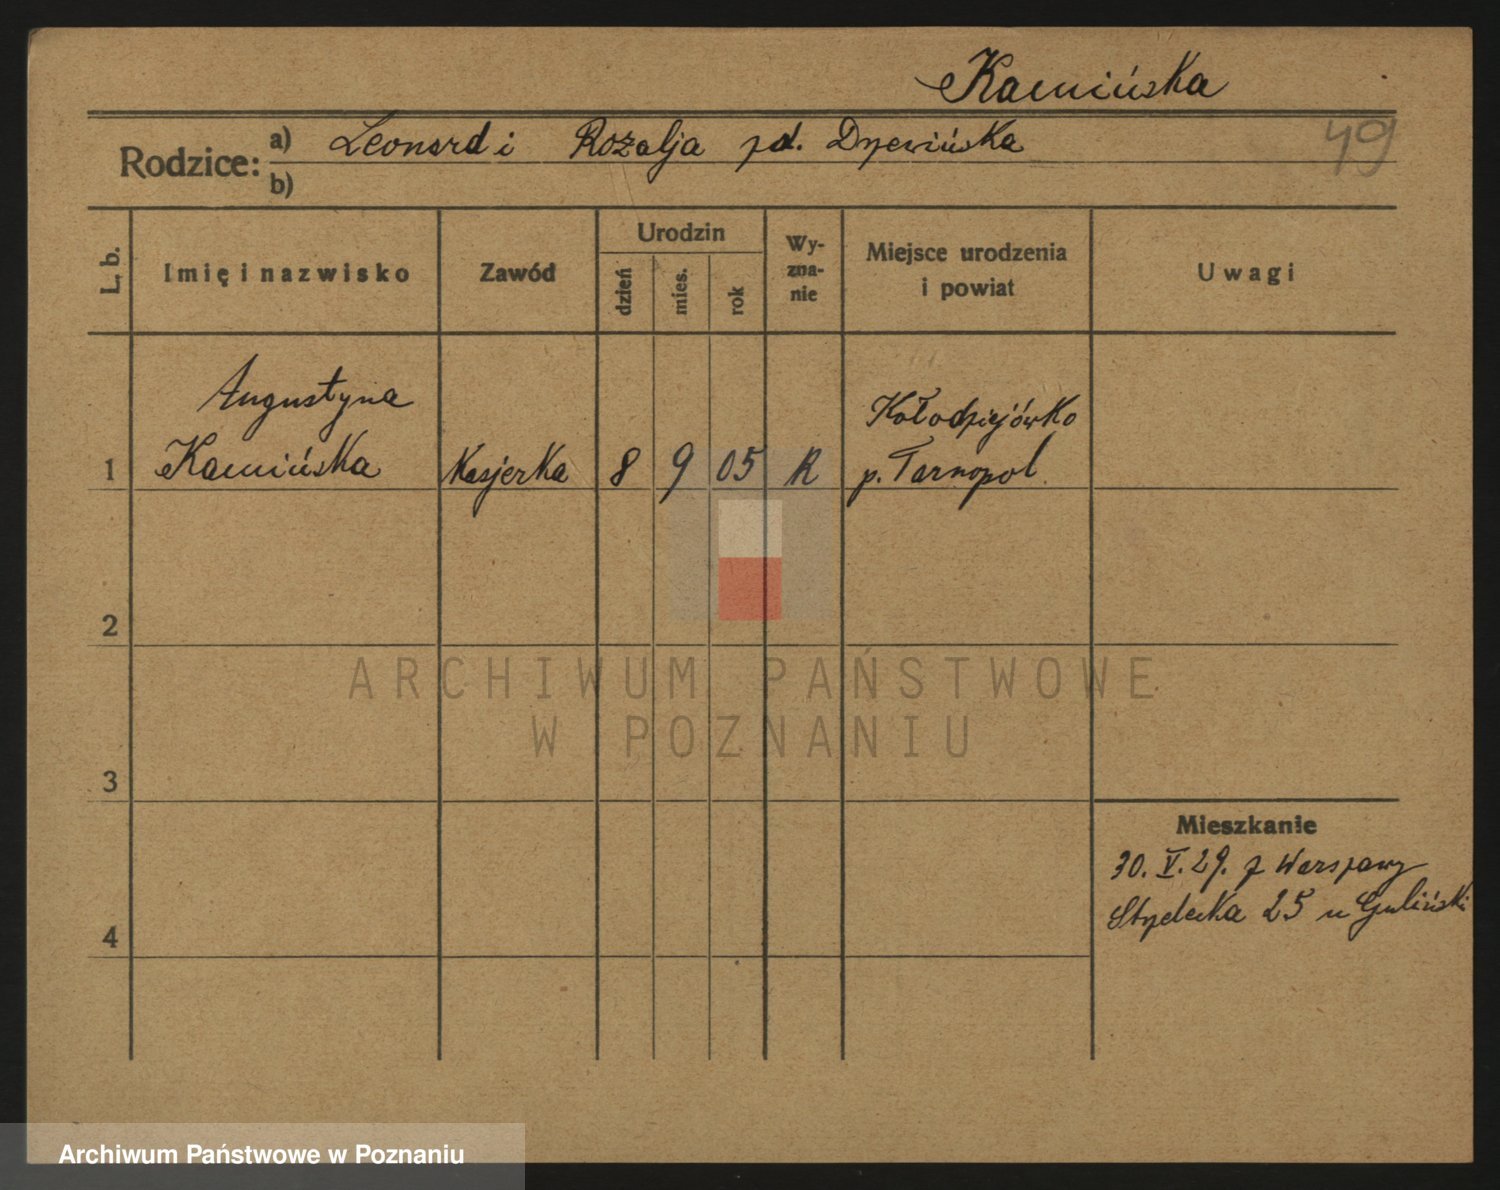 Kamińska
49
Rodzice: a) Leonard i Rozalja zd. Drzewińska
b)
L. b.
Imię i nazwisko
Zawód
Urodzin
dzień
mies.
rok
Wy-
zna-
nie
Miejsce urodzenia
i powiat
Uwagi
Augustyna
Kołodziejówko
1 Kamińska Kasjerka 8 9 05 R p. Tarnopol
2
3
4
Mieszkanie
30. V. 29. z Warszawy
25 u Guliński
ARCHIWUM PAŃSTWOWE
W POZNANIU
Archiwum Państwowe w Poznaniu